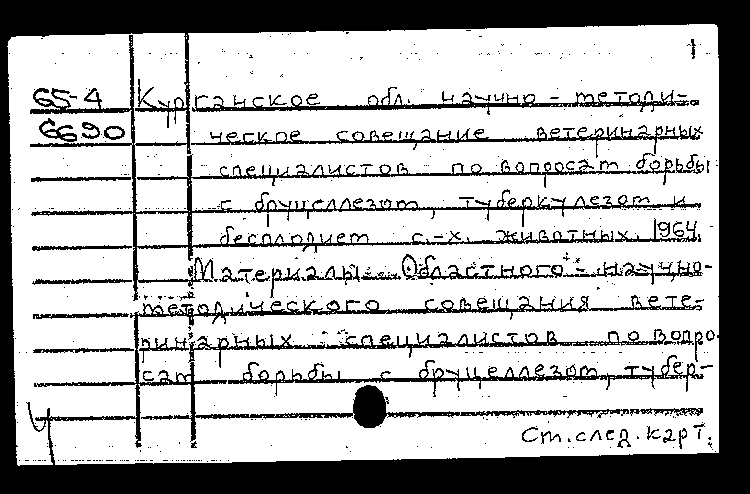 1
65-4 Курганское обл. научно-методи-
6690 ческое совещание ветеринарных
специалистов по вопросам борьбы
с бруцеллезом, туберкулезом и
бесплодием с.-х. животных. 1964.
Материалы Областного научно-
методического совещания вете-
ринарных специалистов по вопро-
сам борьбы с бруцеллезом, тубер-
Ст. след. карт.